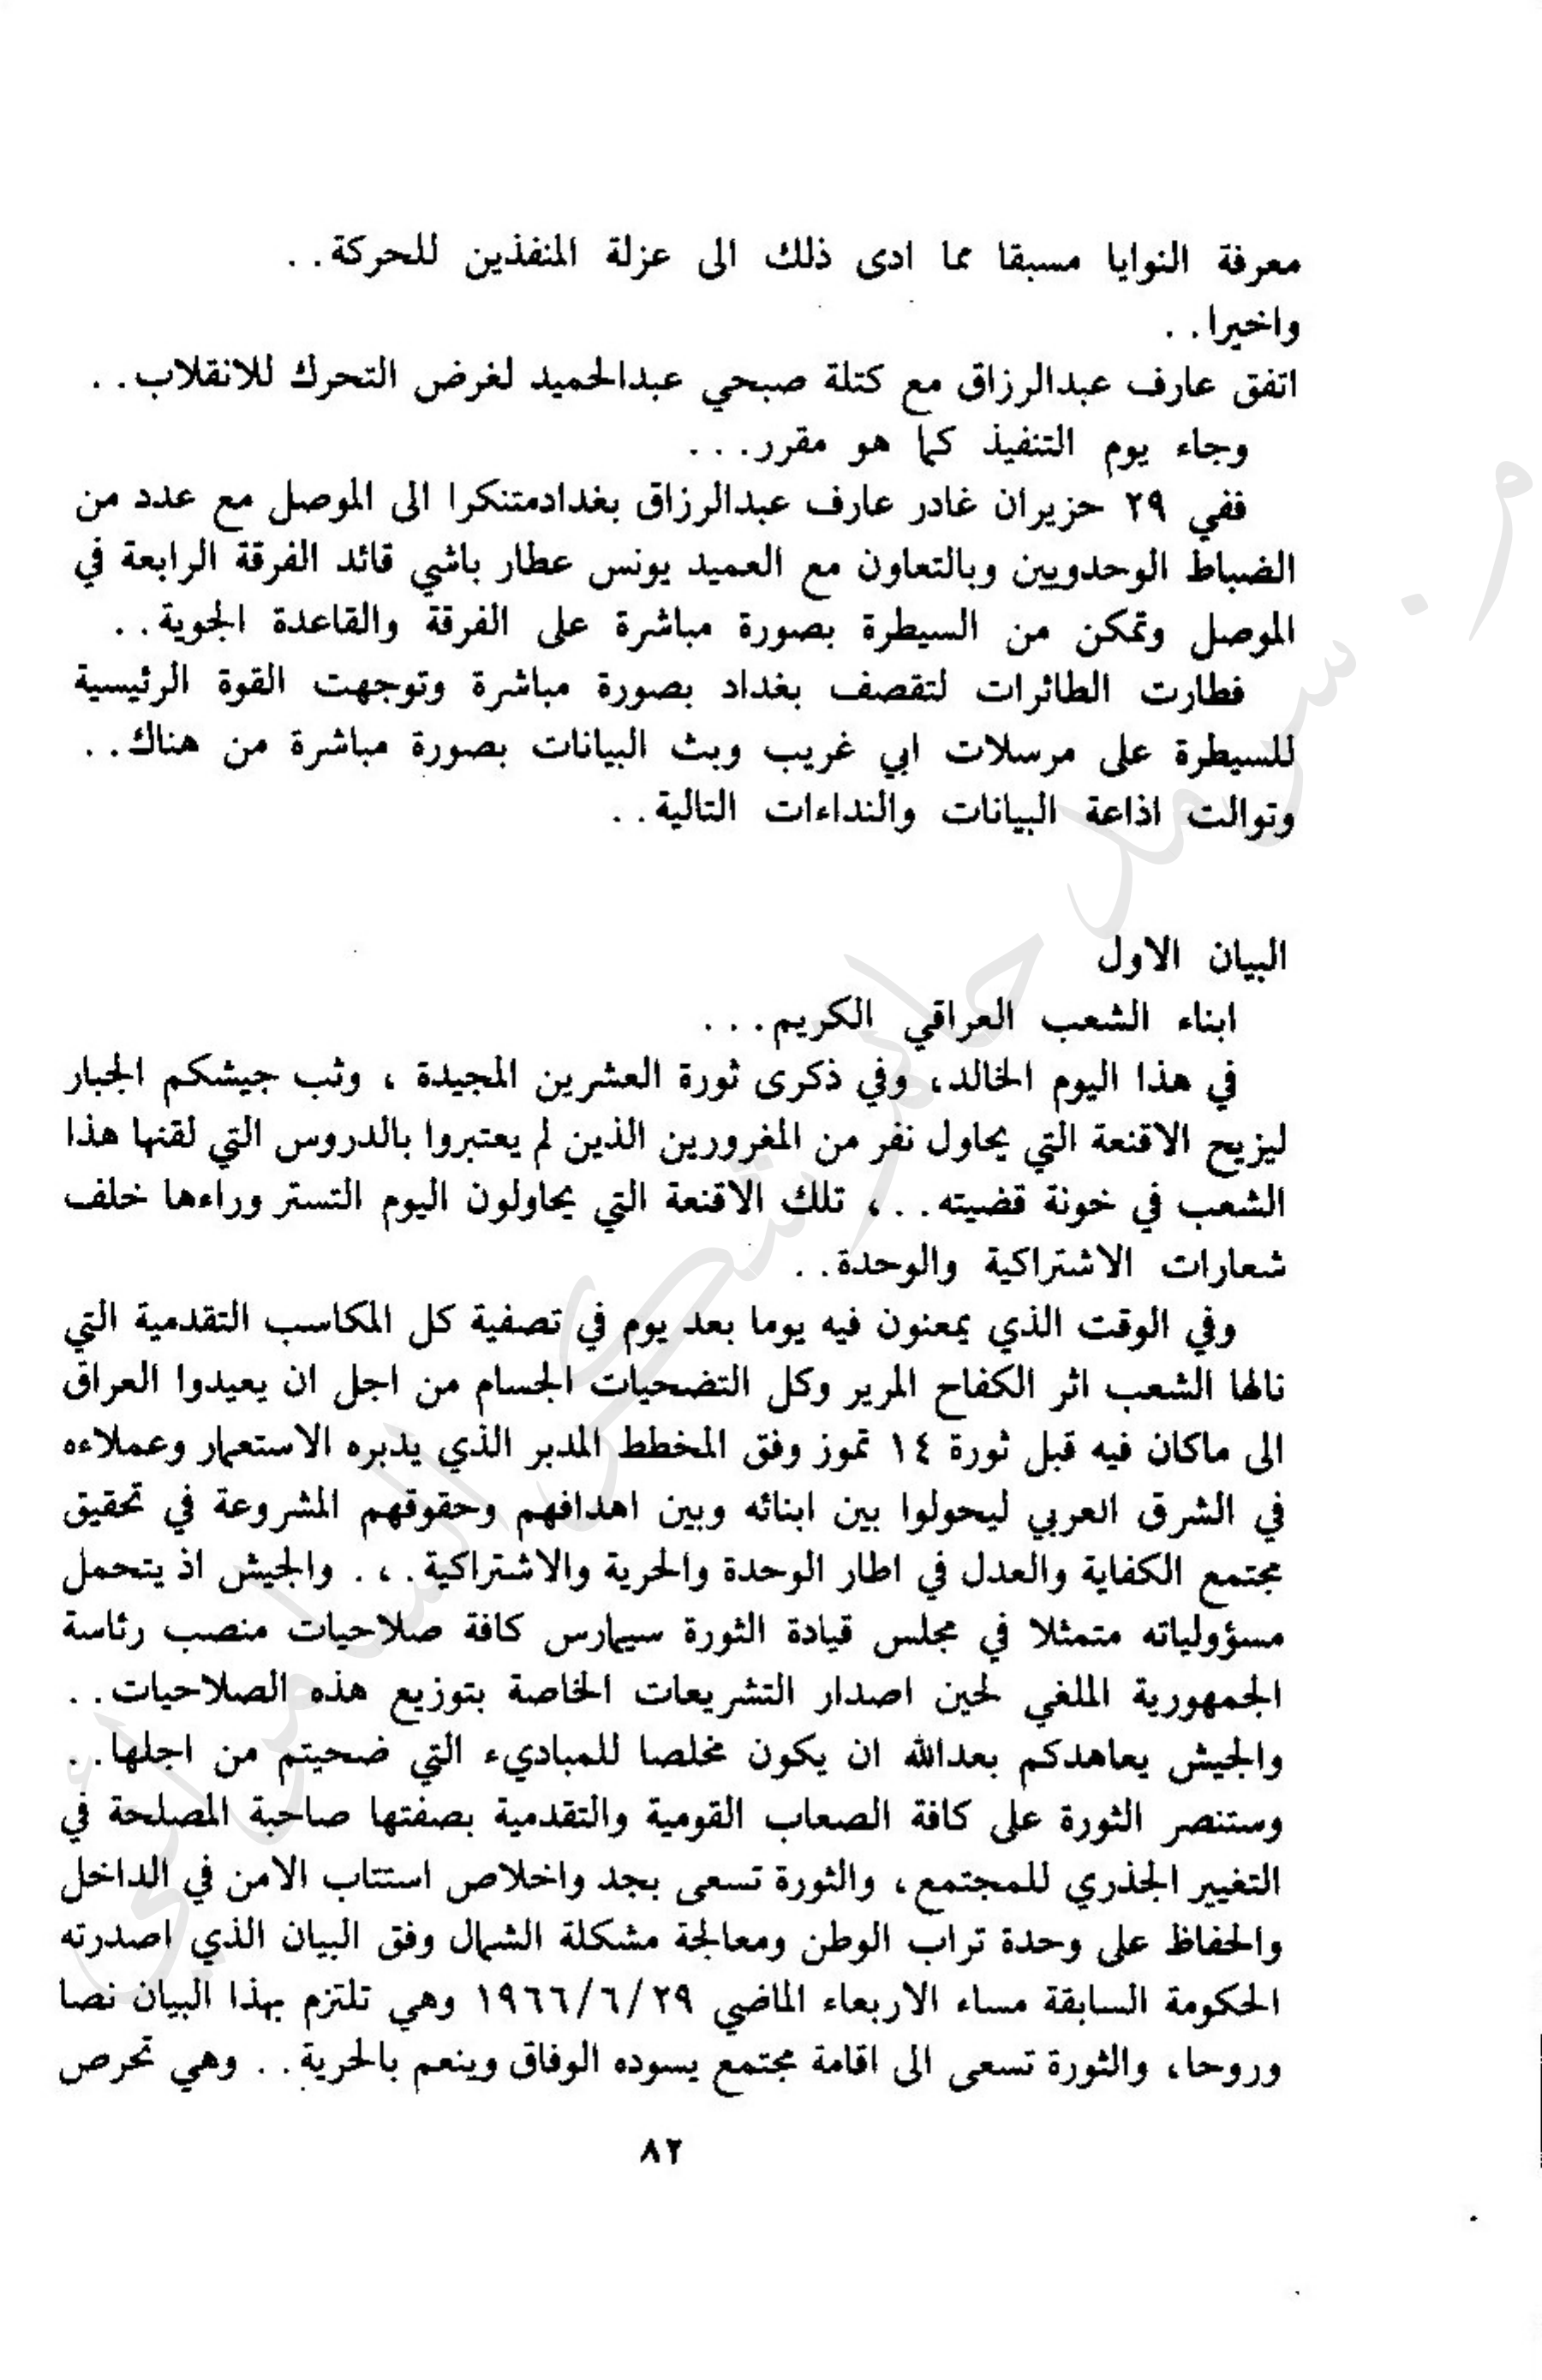 معرفة النوايا مسبقا مما ادى ذلك الى عزلة المنفذين للحركة..
واخيرا..
اتفق عارف عبدالرزاق مع كتلة صبحي عبدالحميد لغرض التحرك للانقلاب..
وجاء يوم التنفيذ كما هو مقرر...
ففي ٢٩ حزيران غادر عارف عبدالرزاق بغدادمتنكرا الى الموصل مع عدد من
الضباط الوحدويين وبالتعاون مع العميد يونس عطار باشي قائد الفرقة الرابعة في
الموصل وتمكن من السيطرة بصورة مباشرة على الفرقة والقاعدة الجوية..
فطارت الطائرات لتقصف بغداد بصورة مباشرة وتوجهت القوة الرئيسية
للسيطرة على مرسلات ابي غريب وبث البيانات بصورة مباشرة من هناك..
وتوالت اذاعة البيانات والنداءات التالية..
البيان الاول
ابناء الشعب العراقي الكريم...
في هذا اليوم الخالد، وفي ذكرى ثورة العشرين المجيدة ، وثب جيشكم الجبار
ليزيح الاقنعة التي يحاول نفر من المغرورين الذين لم يعتبروا بالدروس التي لقنها هذا
الشعب في خونة قضيته..، تلك الاقنعة التي يحاولون اليوم التستر وراءها خلف
شعارات الاشتراكية والوحدة..
وفي الوقت الذي يمعنون فيه يوما بعد يوم في تصفية كل المكاسب التقدمية التي
نالها الشعب اثر الكفاح المرير وكل التضحيات الجسام من اجل ان يعيدوا العراق
الى ماكان فيه قبل ثورة ١٤ تموز وفق المخطط المدبر الذي يدبره الاستعمار وعملاءه
في الشرق العربي ليحولوا بين ابنائه وبين اهدافهم وحقوقهم المشروعة في تحقيق
مجتمع الكفاية والعدل في اطار الوحدة والحرية والاشتراكية.،. والجيش اذ يتحمل
مسؤولياته متمثلا في مجلس قيادة الثورة سيمارس كافة صلاحيات منصب رئاسة
الجمهورية الملغي لحين اصدار التشريعات الخاصة بتوزيع هذه الصلاحيات..
والجيش يعاهدكم بعدالله ان يكون مخلصا للمباديء التي ضحيتم من اجلها..
وستنصر الثورة على كافة الصعاب القومية والتقدمية بصفتها صاحبة المصلحة في
التغيير الجذري للمجتمع، والثورة تسعى بجد واخلاص استتاب الامن في الداخل
والحفاظ على وحدة تراب الوطن ومعالجة مشكلة الشمال وفق البيان الذي اصدرته
الحكومة السابقة مساء الاربعاء الماضي ١٩٦٦/٦/٢٩ وهي تلتزم بهذا البيان نصا
وروحا، والثورة تسعى الى اقامة مجتمع يسوده الوفاق وينعم بالحرية.. وهي تحرص
٨٢